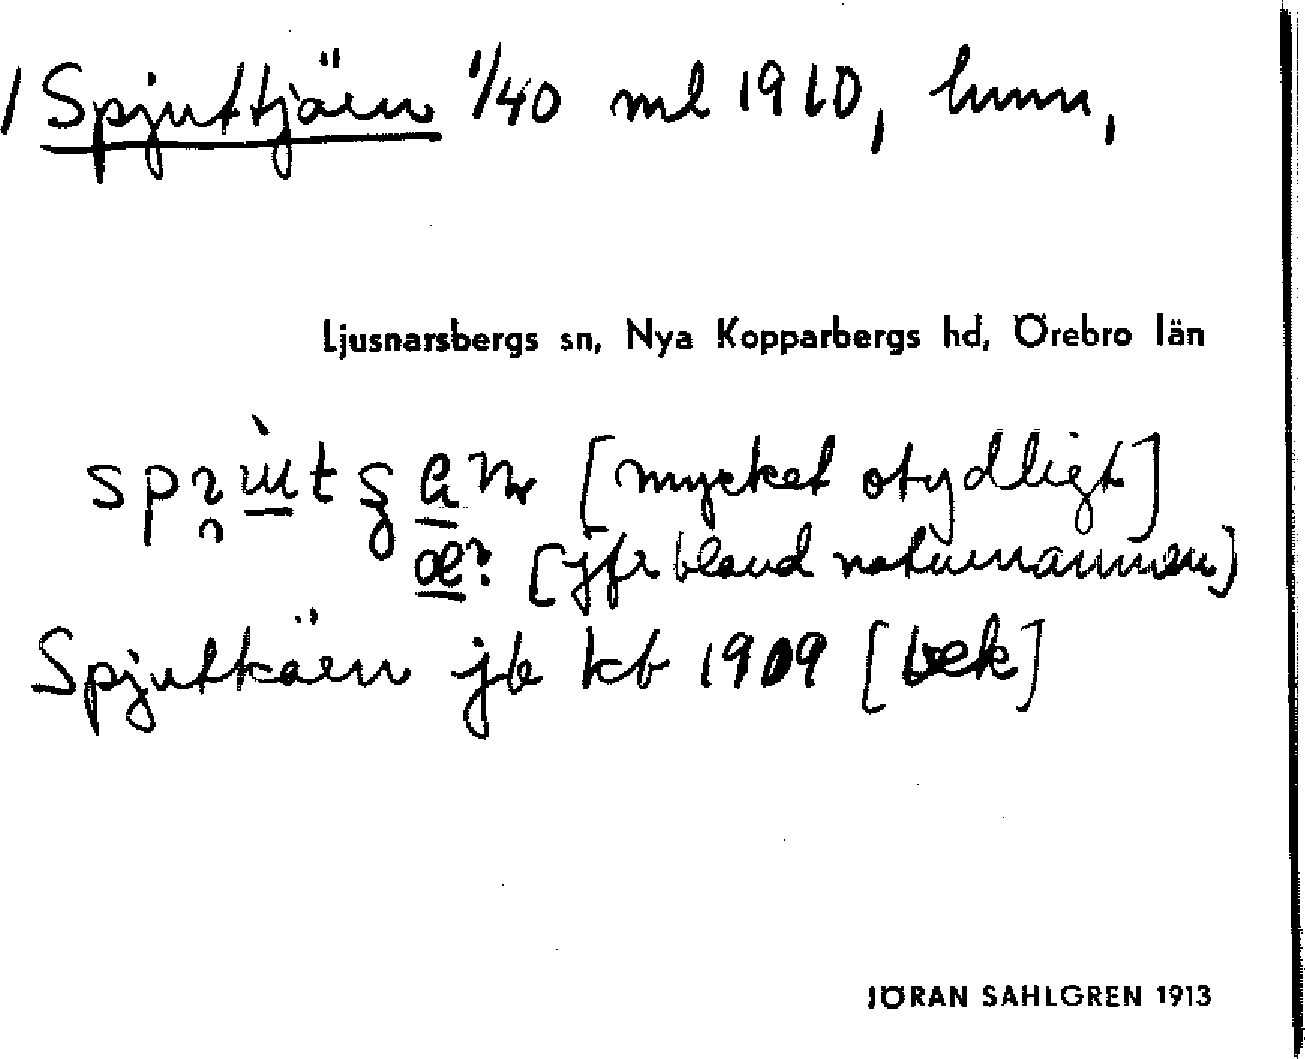 1 Spjuttjärn 1/40 ml 1910, hmn,
Ljusnarsbergs sn, Nya Kopparbergs hd, Örebro län
[mycket otydligt]
æ? [jfr bland naturnamnen]
Spjutkärn jb kb 1909 [bek]
JÖRAN SAHLGREN 1913